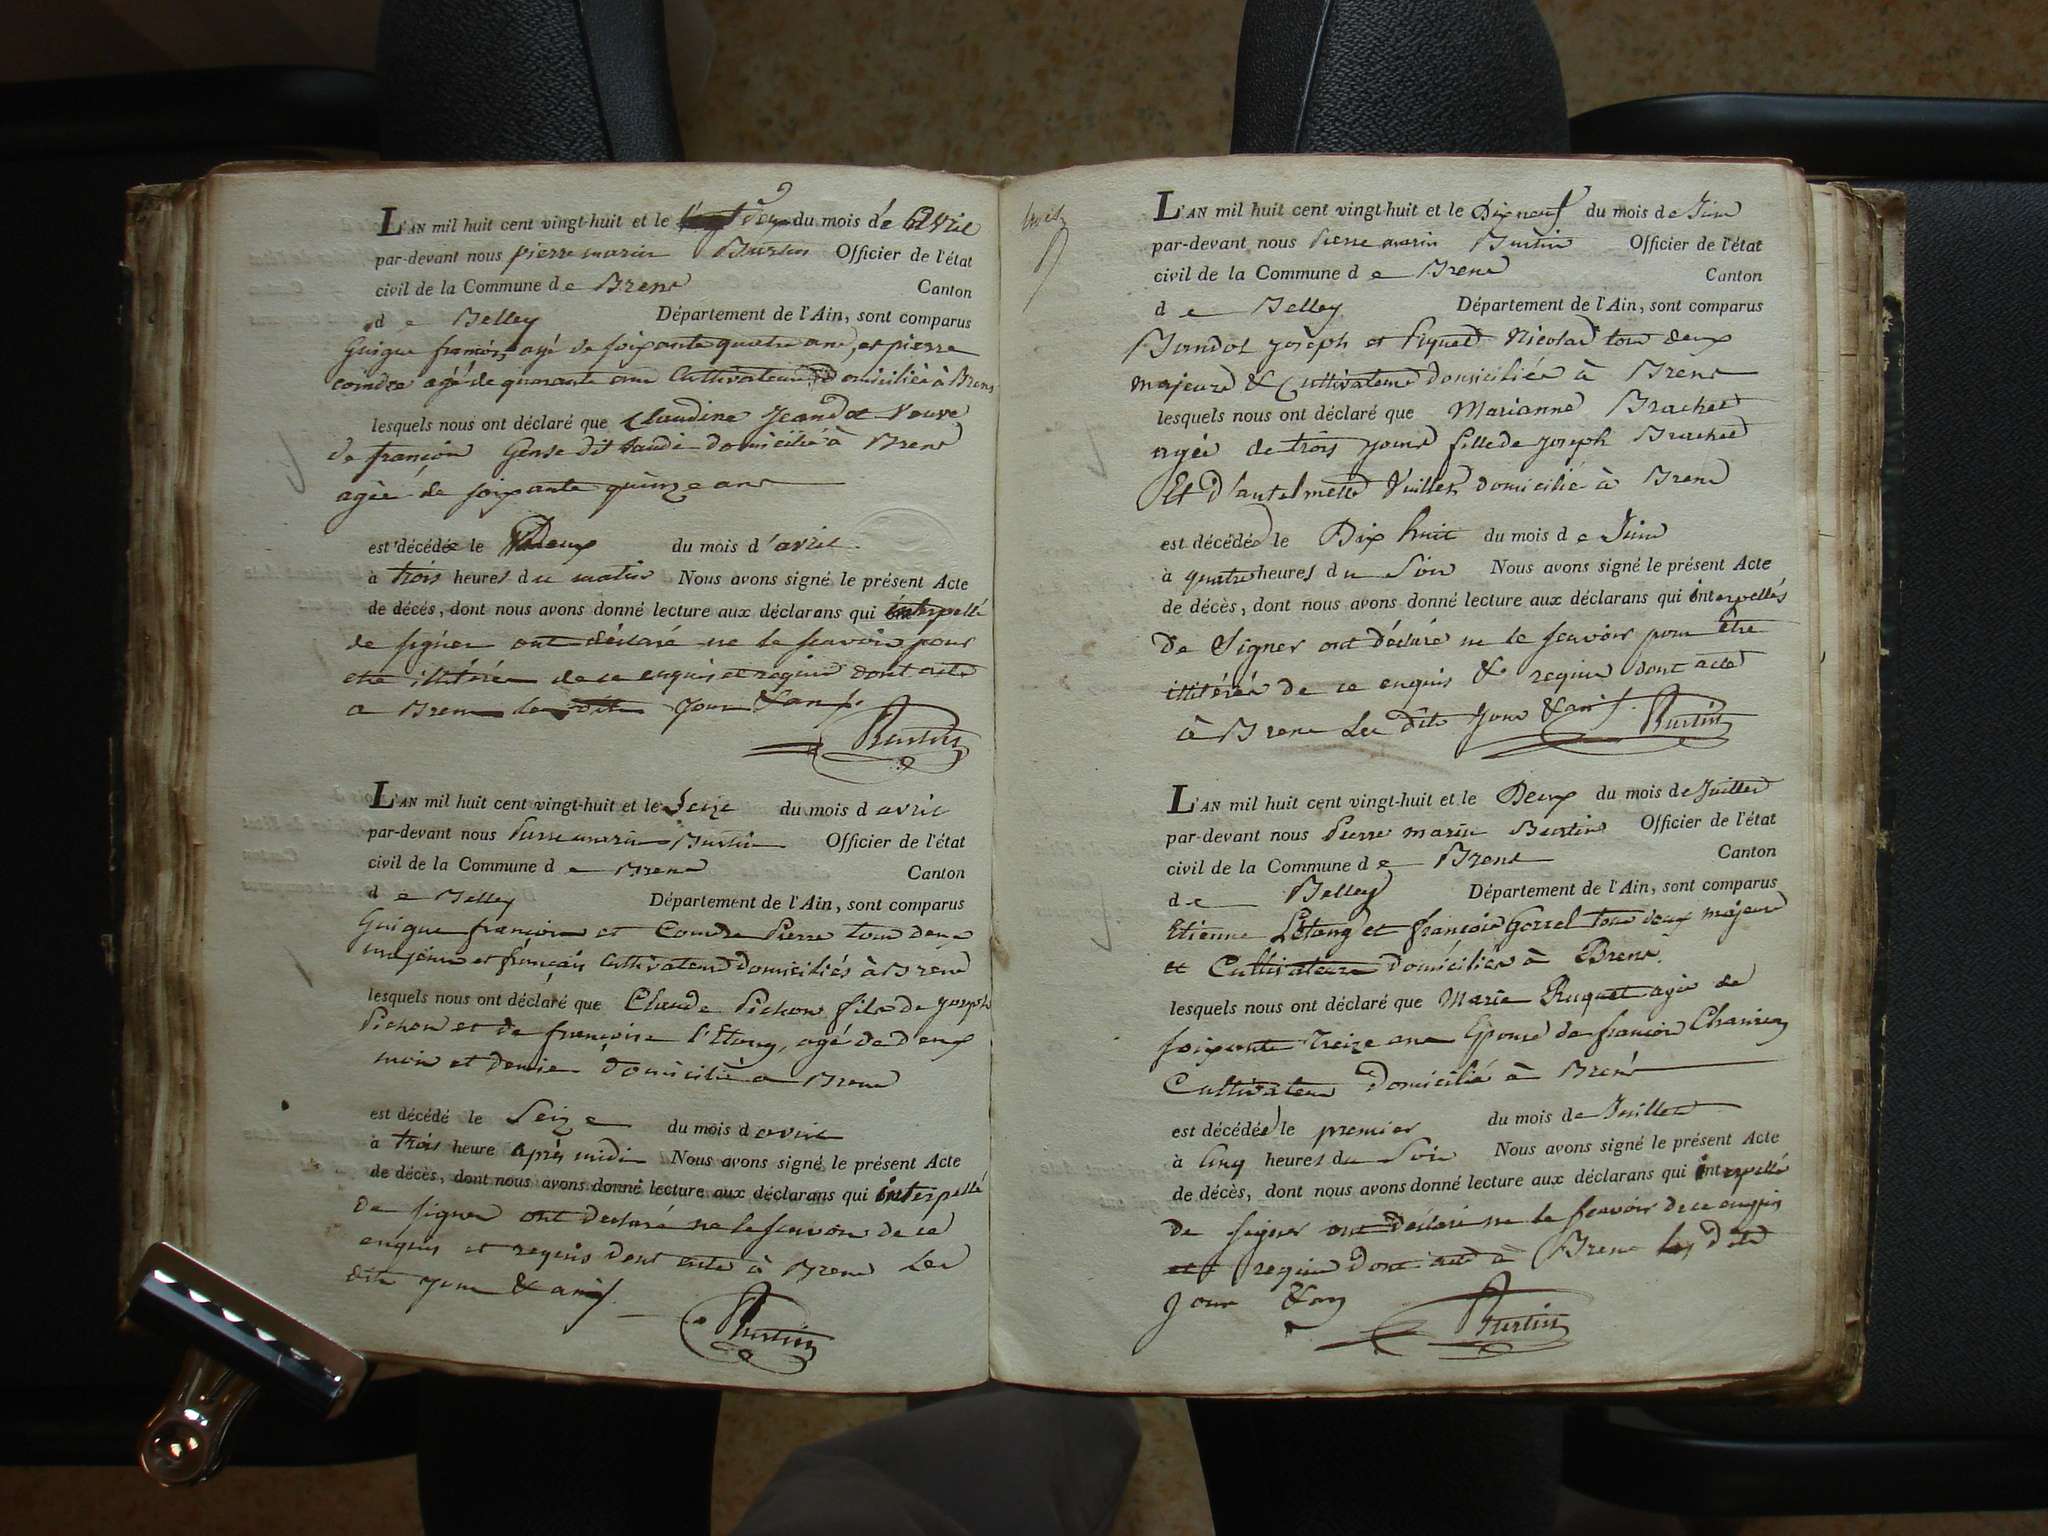 L'AN mil huit cent vingt-huit et le deux du mois de Avril
par-devant nous pierre marin Burtin Officier de l'état
civil de la Commune de Brens Canton
de Belley Département de l'Ain, sont comparus
Guigue françois agé de soixante quatre ans, et pierre
coindre agé de quarante ans Cultivateurs Domiciliés à Brens
lesquels nous ont déclaré que Claudine Jeandot Veuve
de françois Gense dit domicilié à Brens
agée de soixante quinze ans
est décédée le Deux du mois d'avril
à trois heures du matin Nous avons signé le présent Acte
de décès, dont nous avons donné lecture aux déclarans qui interpellé
de signer ont déclaré ne le scavoir pour
etre illitérés de ce enquis et requis dont acte
a Brens les dits jour & an
Burtin
L'AN mil huit cent vingt-huit et le Seize du mois d avril
par-devant nous Pierre marin Burtin Officier de l'état
civil de la Commune de Brens Canton
de Belley Département de l'Ain, sont comparus
Guigue françois et Coindre Pierre tous deux
majeurs et français Cultivateurs domiciliés à Brens
lesquels nous ont déclaré que Claude Pichon fils de joseph
Pichon et de françoise l'Etang, agé de deux
mois et demie domicilié a Brens
est décédé le Seize du mois d avril
à trois heure après midi Nous avons signé le présent Acte
de décès, dont nous avons donné lecture aux déclarans qui interpellé
de signer ont déclaré ne le scavoir de ce
enquis et requis dont acte à Brens Les
dits jour & an
Burtin
L'AN mil huit cent vingt-huit et le Dix neuf du mois de Juin
par-devant nous Pierre marin Burtin Officier de l'état
civil de la Commune de Brens Canton
de Belley Département de l'Ain, sont comparus
joseph et Nicolas tous deux
majeurs & Cultivateurs domiciliés à Brens
lesquels nous ont déclaré que Marianne Brachet
agée de trois jours fille de joseph Brachet
Et d'antelmette Vuillet domicilié à Brens
est décédée le Dix huit du mois de Juin
à quatre heures du Soir Nous avons signé le présent Acte
de décès, dont nous avons donné lecture aux déclarans qui interpellés
De Signer ont déclaré ne le scavoir pour Etre
illitérés de ce enquis & requis dont acte
à Brens Les dits Jour & an
Burtin
L'AN mil huit cent vingt-huit et le Deux du mois de Juillet
par-devant nous Pierre marin Burtin Officier de l'état
civil de la Commune de Brens Canton
de Belley Département de l'Ain, sont comparus
Etienne Létang et françois Gorrel tous deux majeurs
et Cultivateurs domiciliés à Brens
lesquels nous ont déclaré que Marie Ruquet agée de
soixante Treize ans Epouse de françois
Cultivateur Domicilié à Brens
est décédée le premier du mois de Juillet
à Cinq heures du Soir Nous avons signé le présent Acte
de décès, dont nous avons donné lecture aux déclarans qui interpellé
De signer ont déclaré ne le scavoir de ce enquis
et requis Dont acte à Brens les dits
Jour & an
Burtin